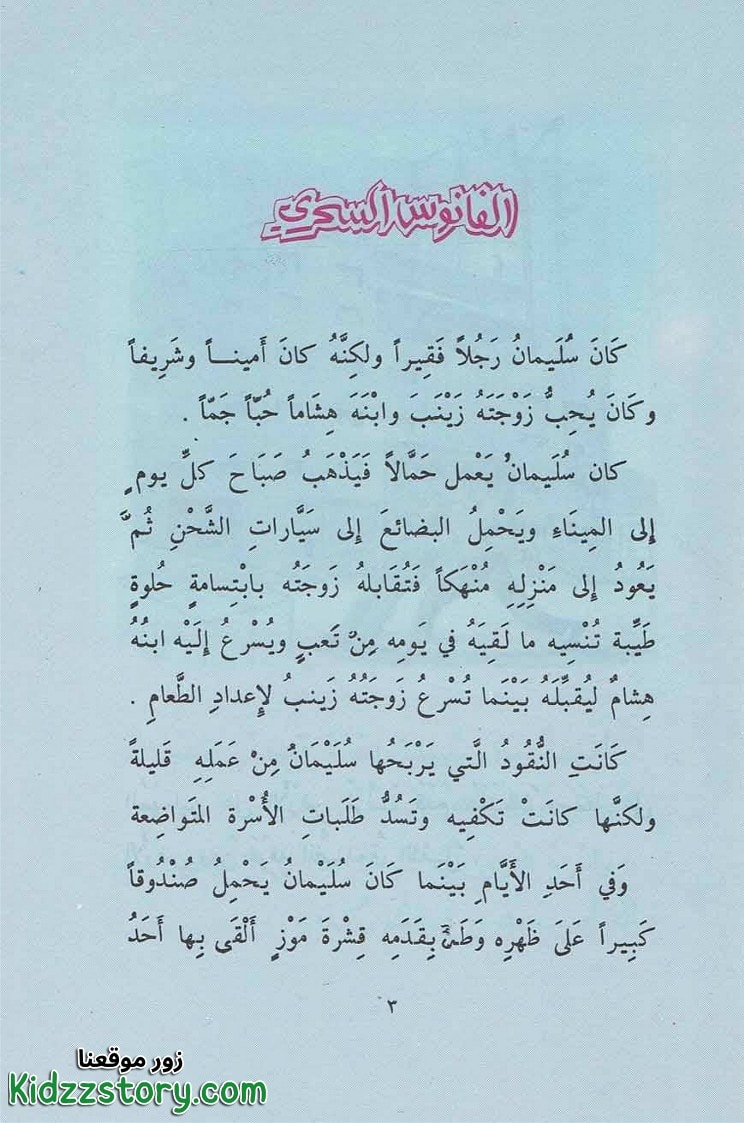 الفانوس السحري
كَانَ سُلَيمانُ رَجُلاً فَقِيراً ولكِنَّهُ كانَ أَمينـــاً وشَرِيفاً
وكَانَ يُحِبُّ زَوْجَتَهُ زَيْنَبَ وابْنَهَ هِشَاماً حُبّاً جَمّاً .
كان سُلَيمانُ يَعْمل حَمَّالاً فَيَذْهَبُ صَبَاحَ كلِّ يوم ٍ
إلى المِينَاءِ ويَحْمِلُ البضائعَ إلى سَيَّاراتِ الشَّحْنِ ثُمَّ
يَعُودُ إلى مَنْزِلِهِ مُنْهَكاً فَتُقابلهُ زَوجَتُه بابْتِسامةٍ حُلوةٍ
طَيِّبة تُنْسِيه ما لَقِيَهُ في يَومِه مِنْ تَعبٍ ويُسْرعُ إلَيْه ابنُهُ
هِشامٌ ليُقبِّلَهُ بَيْنَما تُسْرعُ زَوجَتُهُ زَينبُ لإعدادِ الطَّعامِ .
كَانَتِ النُّقُودُ الَّتي يَرْبَحُها سُلَيْمَانُ مِنْ عَمَلِهِ قَليلةً
ولكنَّها كانَتْ تَكْفِيه وتَسُدُّ طَلَباتِ الأُسْرة المتَواضِعة
وَفي أَحَدِ الأَيَّامِ بَيْنَما كَانَ سُلَيْمَانُ يَحْمِلُ صُنْدُوقاً
كَبِيراً عَلَى ظَهْرِه وَطَىءَ بِقَدَمِه قِشْرةَ مَوْزٍ أَلْقَى بِها أَحَدُ
٣
زور موقعنا
Kidzzstory.com